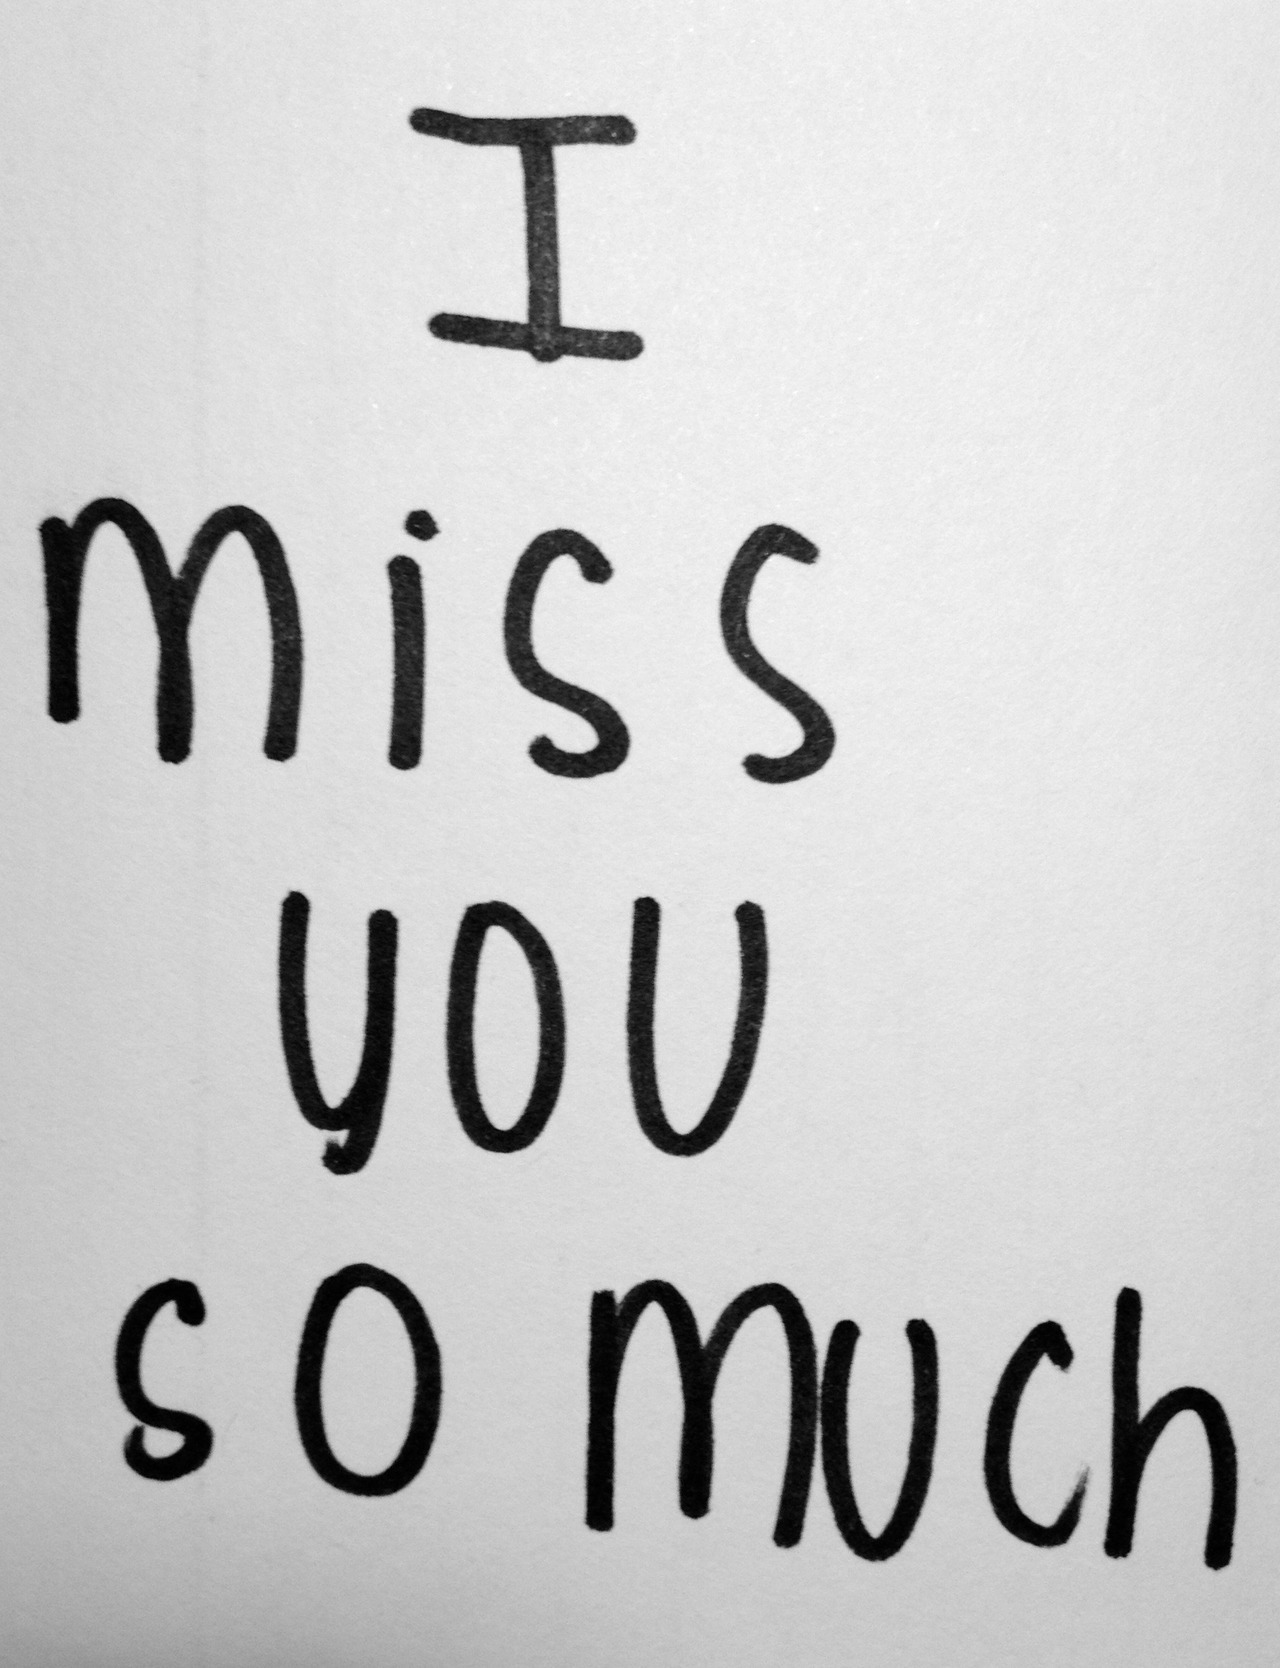 I
miss
you
so much